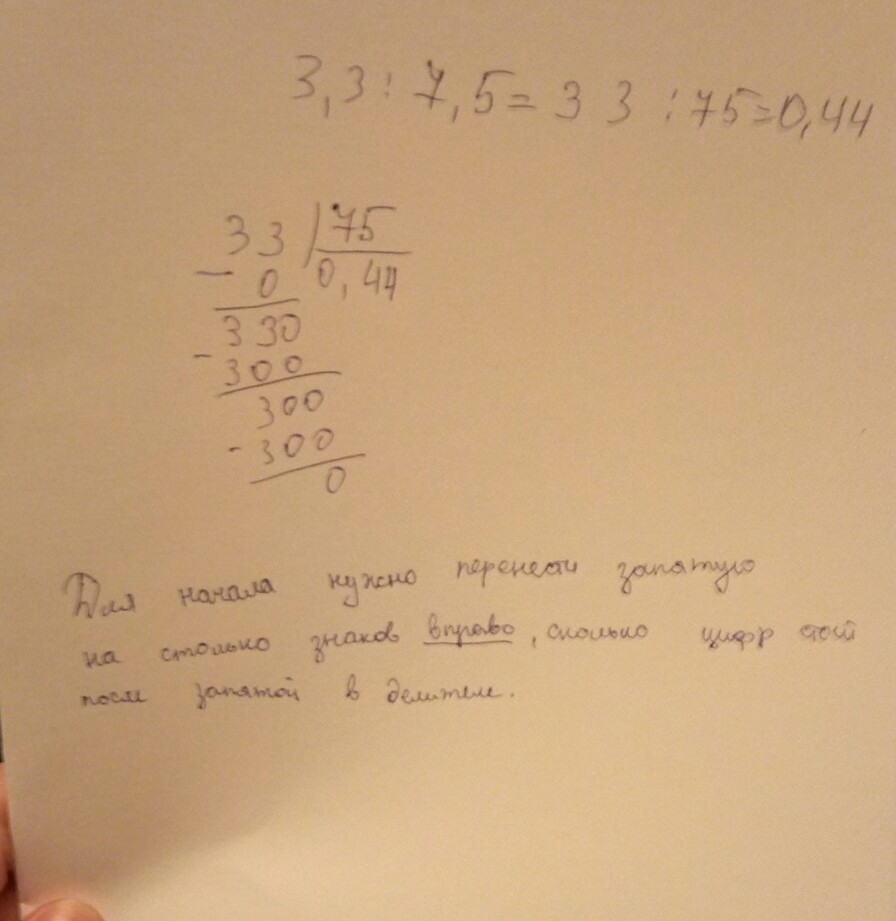 3,3 : 7,5 = 3 3 : 75 = 0,44
33 | 75
- 0 0,44
330
- 300
300
- 300
0
Для начала нужно перенести запятую
на столько знаков вправо, сколько цифр стоит
после запятой в делителе.